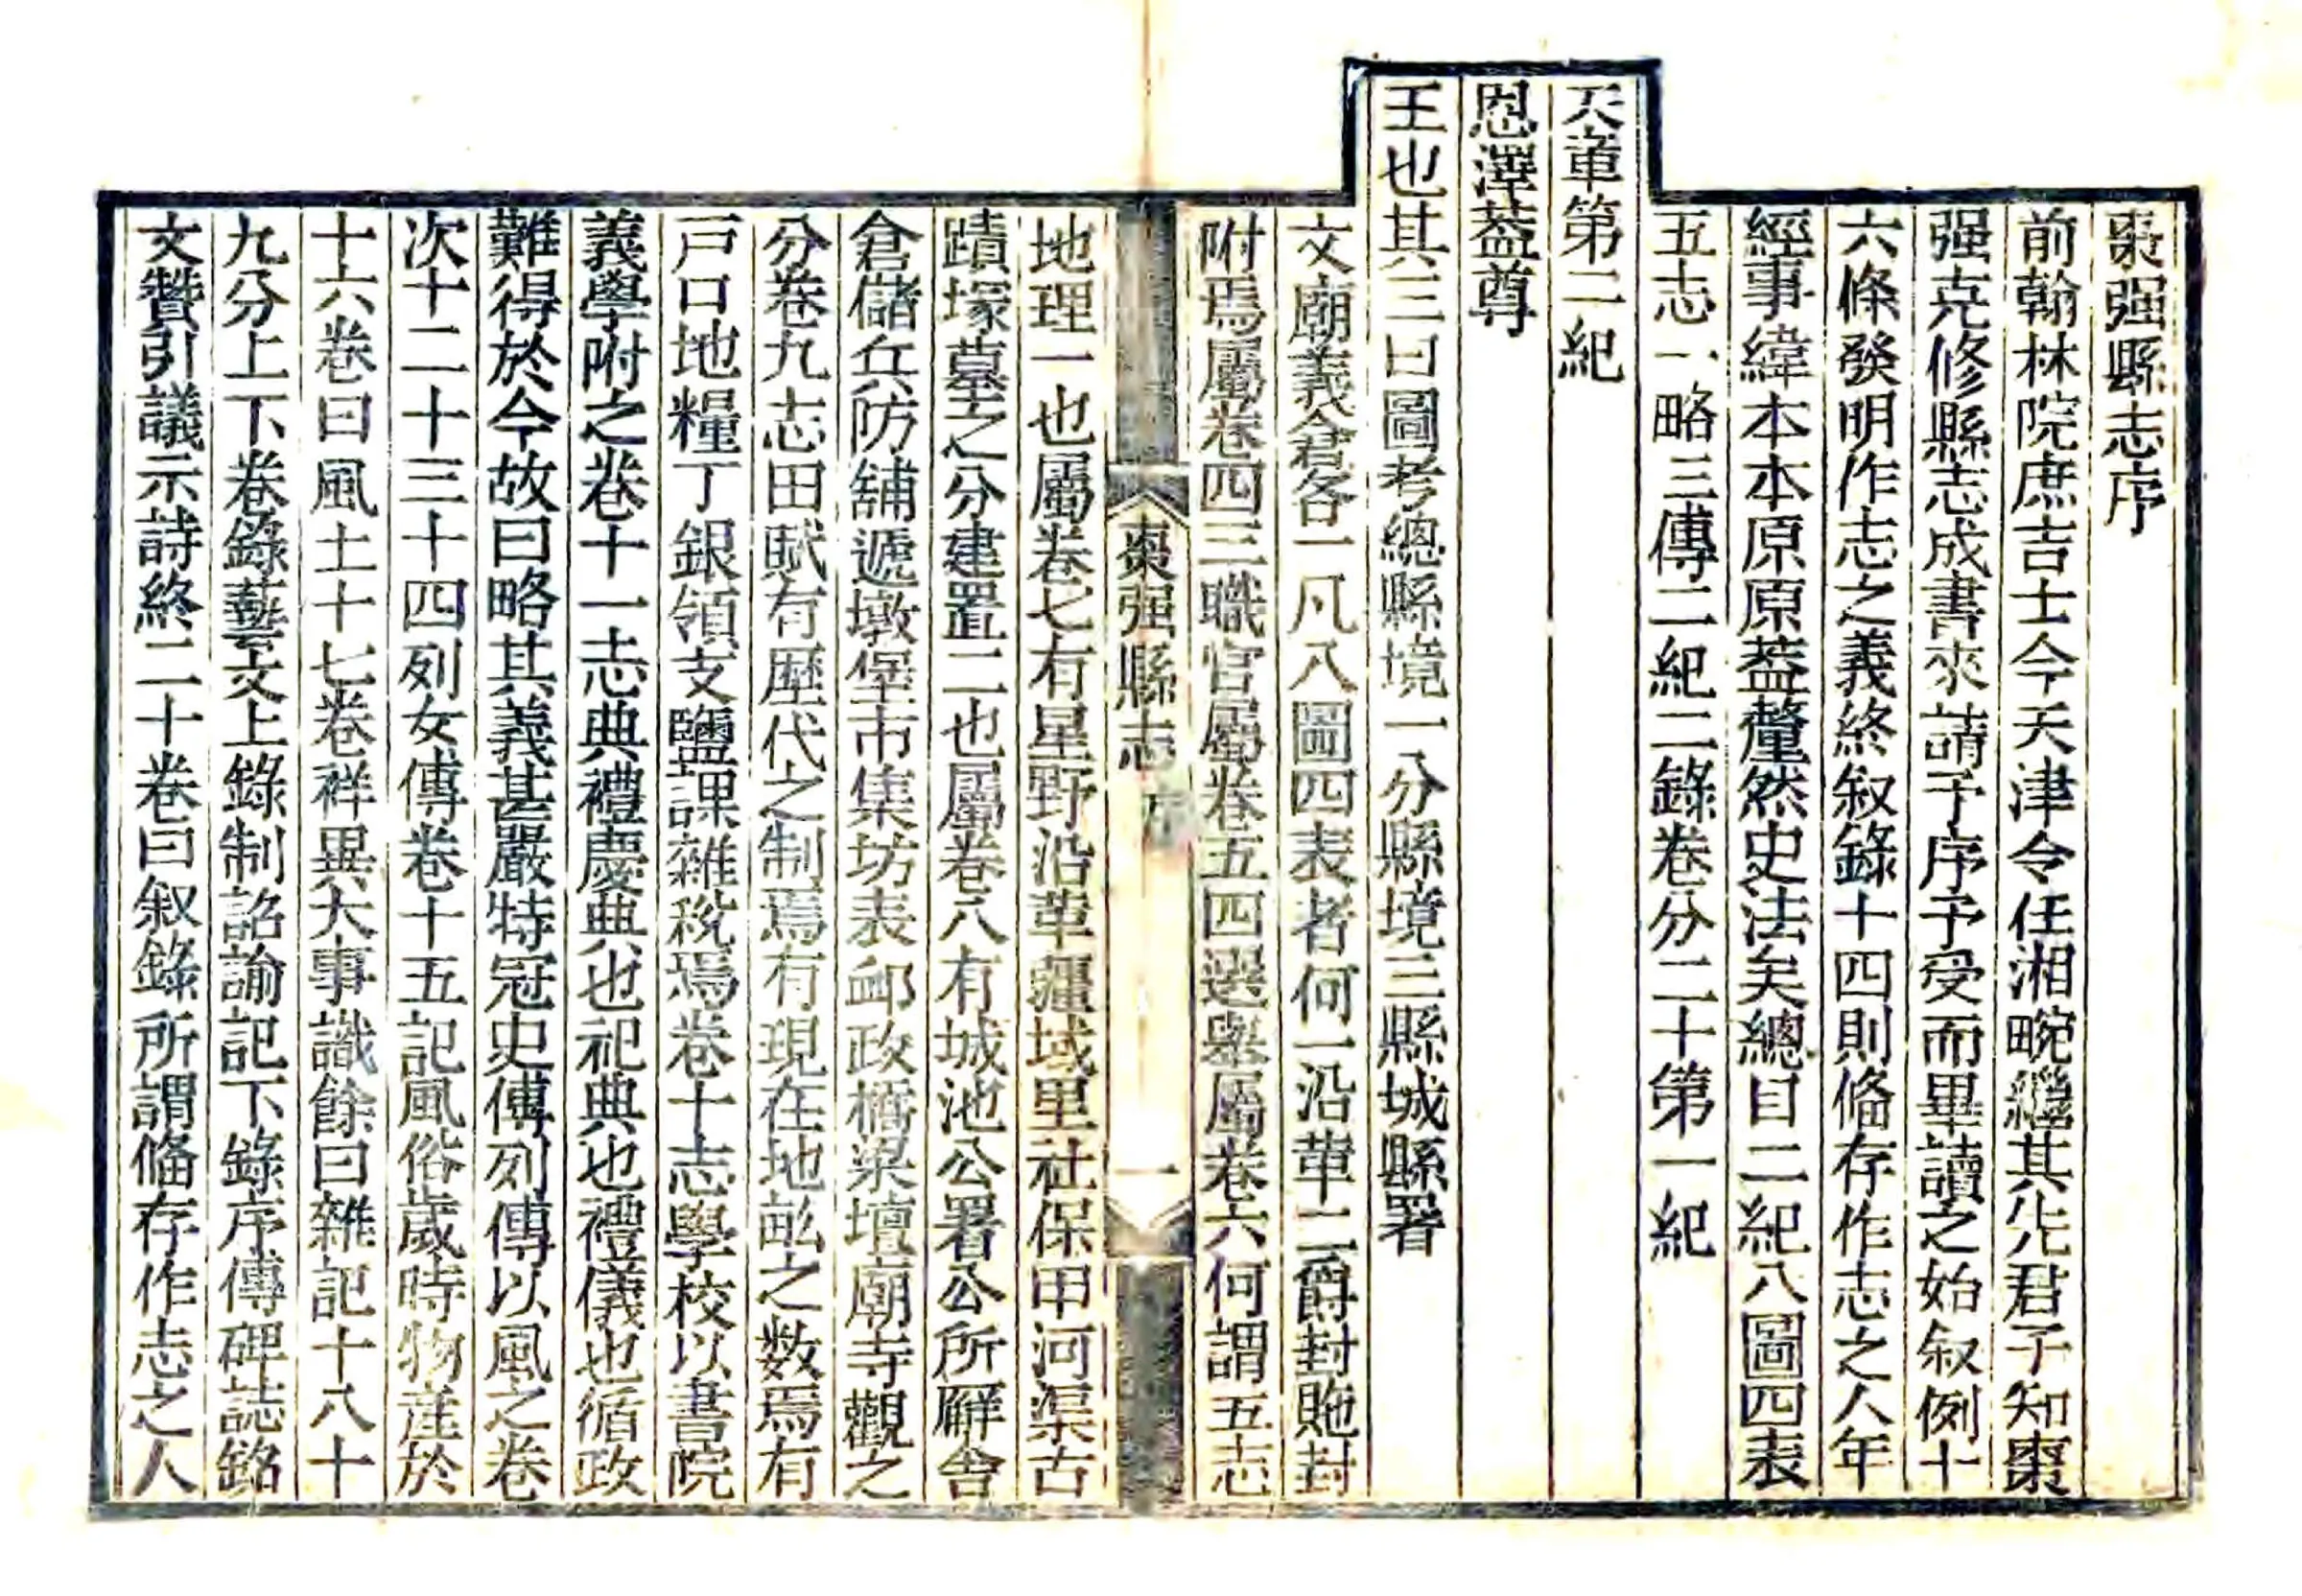 棗强縣志序
前翰林院庶吉士今天津令任湘畹繼其先君子知棗
强克修縣志成書來請予序予受而畢讀之始叙例十
六條發明作志之義終叙錄十四則俻存作志之人年
經事緯本本原原葢釐然史法矣總目二紀八圖四表
五志一略三傳二紀二錄卷分二十第一紀
天章第二紀
恩澤葢尊
王也其三曰圖考總縣境一分縣境三縣城縣署
文廟義倉各一凡八圖四表者何一沿革二爵封貤封
附焉屬卷四三職官屬卷五四選舉屬卷六何謂五志
棗强縣志 序 一
地理一也屬卷七有星野沿革疆域里社保甲河渠古
蹟塚墓之分建置二也屬卷八有城池公署公所廨舍
倉儲兵防舖遞墩堡市集坊表邮政橋梁壇廟寺觀之
分卷九志田賦有歷代之制焉有現在地畝之数焉有
戸口地糧丁銀領支鹽課雜稅焉卷十志學校以書院
義學附之卷十一志典禮慶典也祀典也禮儀也循政
難得於今故曰略其義甚嚴特冠史傳列傳以風之卷
次十二十三十四列女傳卷十五記風俗歲時物産於
十六卷曰風土十七卷祥異大事識餘曰雜記十八十
九分上下卷錄藝文上錄制詔諭記下錄序傳碑誌銘
文贊引議示詩終二十卷曰叙錄所謂俻存作志之人